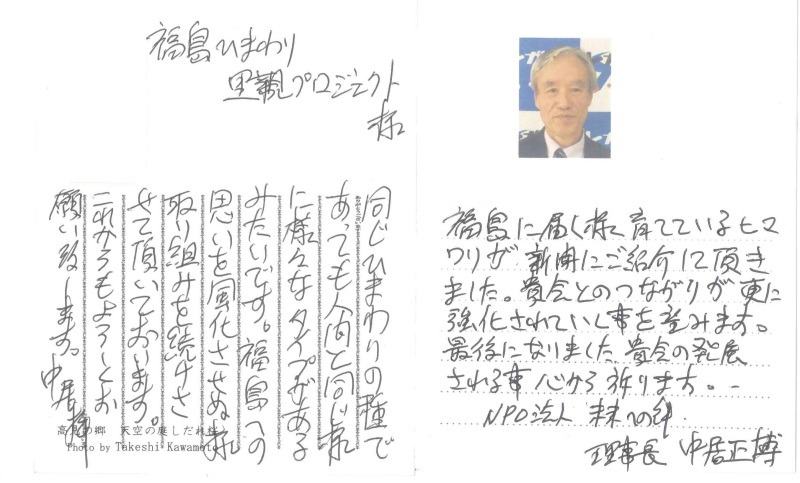 福島ひまわり
里親プロジェクト
様
同じひまわりの種で
あっても人間と同じ様
に様々なタイプがある
みたいです。福島への
思いを風化させぬ様
取り組みを続けさ
せて頂いております。
これからもよろしくお
願い致します。中居
高見の郷 天空の庭しだれ桜
Photo by Takeshi Kawamoto
福島に届く様育てているヒマ
ワリが新聞にご紹介して頂き
ました。貴会とのつながりが更に
強化されていく事を望みます。
最後になりました貴会の発展
される事心から祈ります。
NPO法人 未来への絆
理事長 中居正博